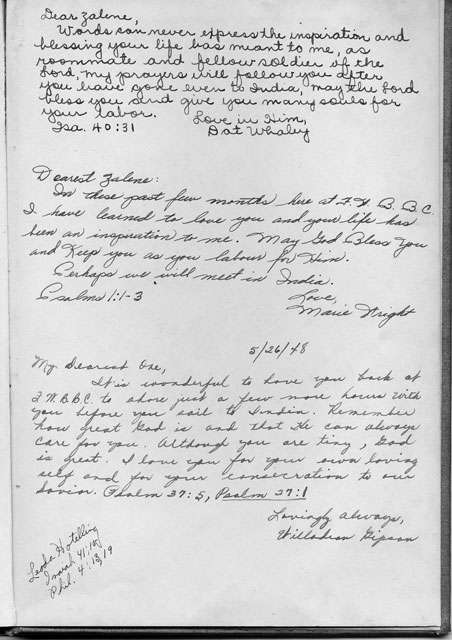 Dear Zalene,
Words can never express the inspiration and
blessing your life has meant to me, as
roommate and fellow soldier of the
Lord, my prayers will follow you after
you have gone even to India, may the Lord
bless you and give you many souls for
your labor. Love in Him,
Isa. 40:31 Dat Whaley
Dearest Zalene:
In these past few months here at F. W. B. B. C.
I have learned to love you and your life has
been an inspiration to me. May God Bless You
and Keep you as you labour for Him.
Perhaps we will meet in India.
Psalms 1:1-3 Love,
Marie Wright
5/26/48
My Dearest One,
It is wonderful to have you back at
F.W.B.B.C. to share just a few more hours with
you before you sail to India. Remember
how great God is and that He can always
care for you. Although you are tiny, God
is great. I love you for your own loving
self and for your consecration to our
Savior. Psalm 37:5, Psalm 27:1
Lovingly Always,
Willadean Gipson
Leoda Hotelling
Isaiah 41:10
Phil. 4:13,19